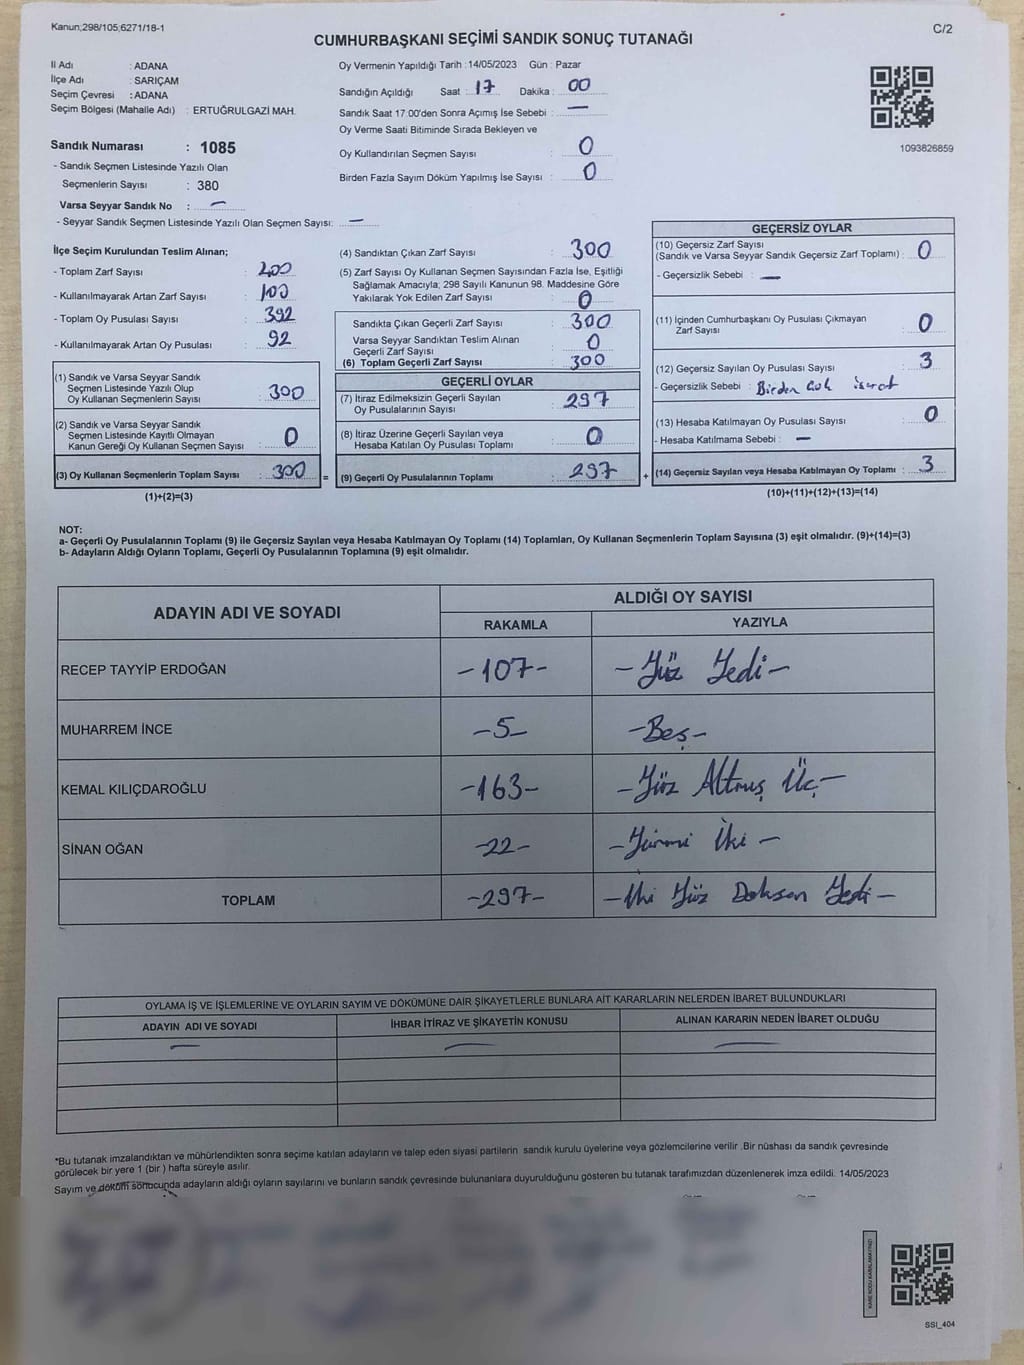 Kanun;298/105;6271/18-1
C/2
CUMHURBAŞKANI SEÇİMİ SANDIK SONUÇ TUTANAĞI
İl Adı : ADANA
İlçe Adı : SARIÇAM
Seçim Çevresi : ADANA
Seçim Bölgesi (Mahalle Adı) : ERTUĞRULGAZİ MAH.
Sandık Numarası : 1085
- Sandık Seçmen Listesinde Yazılı Olan
Seçmenlerin Sayısı : 380
Varsa Seyyar Sandık No : —
- Seyyar Sandık Seçmen Listesinde Yazılı Olan Seçmen Sayısı: —
Oy Vermenin Yapıldığı Tarih : 14/05/2023 Gün : Pazar
Sandığın Açıldığı Saat : 17 Dakika : 00
Sandık Saat 17:00'den Sonra Açımış İse Sebebi : —
Oy Verme Saati Bitiminde Sırada Bekleyen ve
Oy Kullandırılan Seçmen Sayısı : 0
Birden Fazla Sayım Döküm Yapılmış İse Sayısı : 0
1093826859
İlçe Seçim Kurulundan Teslim Alınan;
- Toplam Zarf Sayısı : 400
- Kullanılmayarak Artan Zarf Sayısı : 100
- Toplam Oy Pusulası Sayısı : 392
- Kullanılmayarak Artan Oy Pusulası : 92
(1) Sandık ve Varsa Seyyar Sandık
Seçmen Listesinde Yazılı Olup
Oy Kullanan Seçmenlerin Sayısı : 300
(2) Sandık ve Varsa Seyyar Sandık
Seçmen Listesinde Kayıtlı Olmayan
Kanun Gereği Oy Kullanan Seçmen Sayısı : 0
(3) Oy Kullanan Seçmenlerin Toplam Sayısı : 300
(1)+(2)=(3)
(4) Sandıktan Çıkan Zarf Sayısı : 300
(5) Zarf Sayısı Oy Kullanan Seçmen Sayısından Fazla İse, Eşitliği
Sağlamak Amacıyla; 298 Sayılı Kanunun 98. Maddesine Göre
Yakılarak Yok Edilen Zarf Sayısı : 0
Sandıkta Çıkan Geçerli Zarf Sayısı : 300
Varsa Seyyar Sandıktan Teslim Alınan
Geçerli Zarf Sayısı : 0
(6) Toplam Geçerli Zarf Sayısı : 300
GEÇERLİ OYLAR
(7) İtiraz Edilmeksizin Geçerli Sayılan
Oy Pusulalarının Sayısı : 297
(8) İtiraz Üzerine Geçerli Sayılan veya
Hesaba Katılan Oy Pusulası Toplamı : 0
= (9) Geçerli Oy Pusulalarının Toplamı : 297 +
GEÇERSİZ OYLAR
(10) Geçersiz Zarf Sayısı
(Sandık ve Varsa Seyyar Sandık Geçersiz Zarf Toplamı) : 0
- Geçersizlik Sebebi : —
(11) İçinden Cumhurbaşkanı Oy Pusulası Çıkmayan
Zarf Sayısı : 0
(12) Geçersiz Sayılan Oy Pusulası Sayısı : 3
- Geçersizlik Sebebi : Birden Çok işaret
(13) Hesaba Katılmayan Oy Pusulası Sayısı : 0
- Hesaba Katılmama Sebebi : —
(14) Geçersiz Sayılan veya Hesaba Katılmayan Oy Toplamı : 3
(10)+(11)+(12)+(13)=(14)
NOT:
a- Geçerli Oy Pusulalarının Toplamı (9) ile Geçersiz Sayılan veya Hesaba Katılmayan Oy Toplamı (14) Toplamları, Oy Kullanan Seçmenlerin Toplam Sayısına (3) eşit olmalıdır. (9)+(14)=(3)
b- Adayların Aldığı Oyların Toplamı, Geçerli Oy Pusulalarının Toplamına (9) eşit olmalıdır.
ADAYIN ADI VE SOYADI
ALDIĞI OY SAYISI
RAKAMLA YAZIYLA
RECEP TAYYİP ERDOĞAN -107- -Yüz Yedi-
MUHARREM İNCE -5- -Beş-
KEMAL KILIÇDAROĞLU -163- -Yüz Altmış Üç-
SİNAN OĞAN -22- -Yirmi İki-
TOPLAM -297- -İki Yüz Doksan Yedi-
OYLAMA İŞ VE İŞLEMLERİNE VE OYLARIN SAYIM VE DÖKÜMÜNE DAİR ŞİKAYETLERLE BUNLARA AİT KARARLARIN NELERDEN İBARET BULUNDUKLARI
ADAYIN ADI VE SOYADI İHBAR İTİRAZ VE ŞİKAYETİN KONUSU ALINAN KARARIN NEDEN İBARET OLDUĞU
— — —
*Bu tutanak imzalandıktan ve mühürlendikten sonra seçime katılan adayların ve talep eden siyasi partilerin sandık kurulu üyelerine veya gözlemcilerine verilir .Bir nüshası da sandık çevresinde
görülecek bir yere 1 (bir ) hafta süreyle asılır.
Sayım ve döküm sonucunda adayların aldığı oyların sayılarını ve bunların sandık çevresinde bulunanlara duyurulduğunu gösteren bu tutanak tarafımızdan düzenlenerek imza edildi. 14/05/2023
KARE KODU KARALAMAYINIZ!
SSI_404